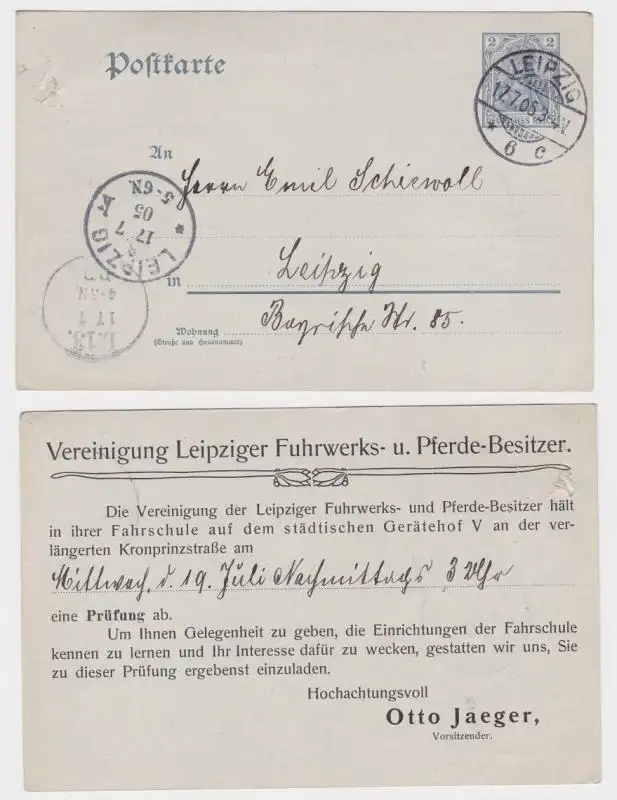 Postkarte
2 2
DEUTSCHES REICH
LEIPZIG
17.7.05.3-4N.
* 6 c
An
Herrn Emil Schiewoll
LEIPZIG
17 7
05
5-6N.
in Leipzig
L.13.
17 7
Bayrische Str. 85.
Wohnung
(Straße und Hausnummer)
Vereinigung Leipziger Fuhrwerks- u. Pferde-Besitzer.
Die Vereinigung der Leipziger Fuhrwerks- und Pferde-Besitzer hält
in ihrer Fahrschule auf dem städtischen Gerätehof V an der ver-
längerten Kronprinzstraße am
Mittwoch, d. 19. Juli Nachmittags 3 Uhr
eine Prüfung ab.
Um Ihnen Gelegenheit zu geben, die Einrichtungen der Fahrschule
kennen zu lernen und Ihr Interesse dafür zu wecken, gestatten wir uns, Sie
zu dieser Prüfung ergebenst einzuladen.
Hochachtungsvoll
Otto Jaeger,
Vorsitzender.